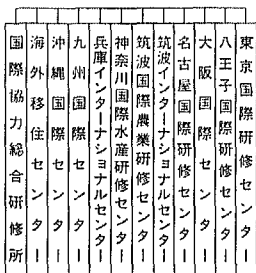 東京国際研修センター
八王子国際研修センター
大阪国際センター
名古屋国際研修センター
筑波インターナショナルセンター
筑波国際農業研修センター
神奈川国際水産研修センター
兵庫インターナショナルセンター
九州国際センター
沖縄国際センター
海外移住センター
国際協力総合研修所